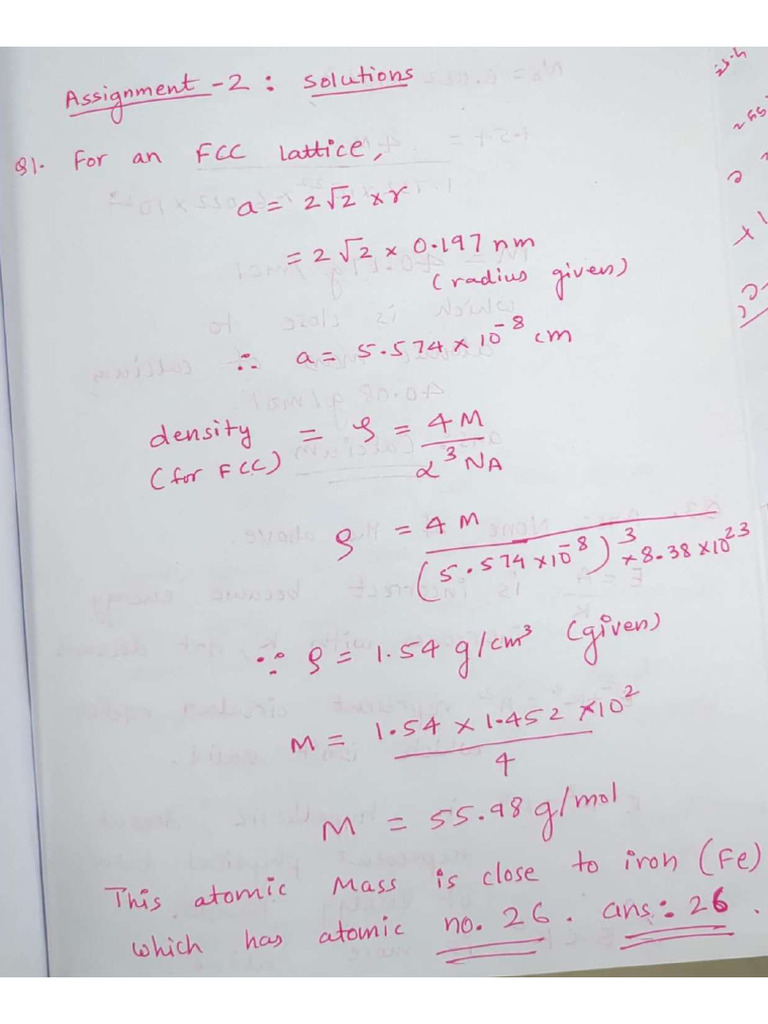 Assignment - 2 : Solutions
Q1. For an FCC lattice,
a = 2√2 × r
= 2√2 × 0.197 nm
(radius given)
∴ a = 5.574 × 10⁻⁸ cm
density = ρ = 4M
(for FCC) a³ NA
ρ = 4M
(5.574 × 10⁻⁸)³ × 8.38 × 10²³
∵ ρ = 1.54 g/cm³ (given)
M = 1.54 × 1.452 × 10²
4
M = 55.98 g/mol
This atomic Mass is close to iron (Fe)
which has atomic no. 26. ans: 26.